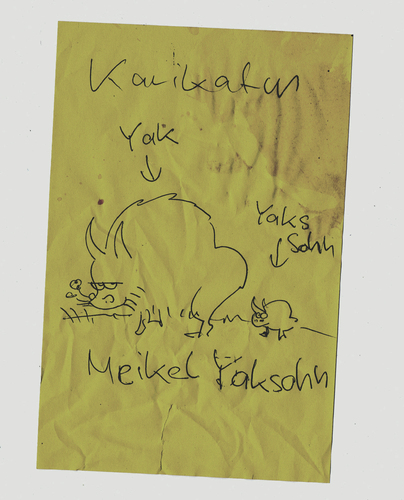 Karikatur
Yak
Yaks
Sohn
Meikel Yaksohn